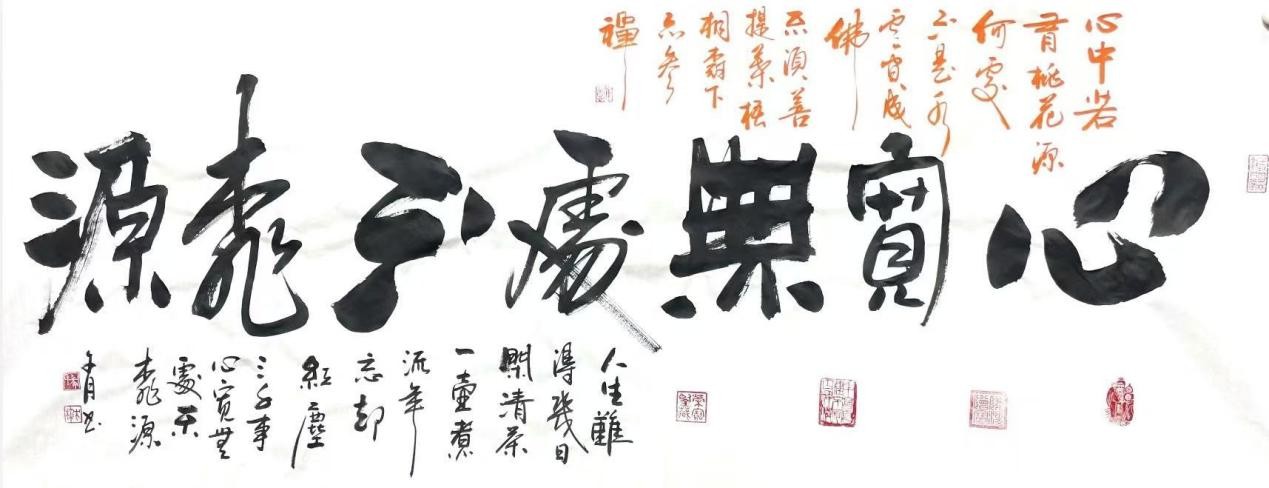 心寬無處不桃源
心中若
有桃花源
何處
不是水
雲間成
佛
亦須菩
提葉梧
桐霜下
亦參
禪
人生難
得幾日
閑清茶
一壺煮
流年
忘却
紅塵
三千事
心寬無
處不
桃源